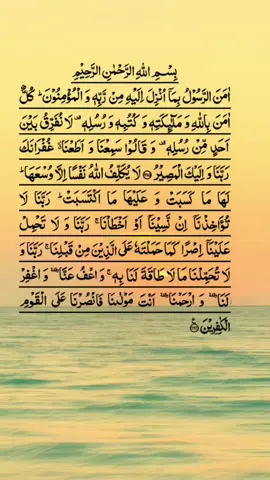 بِسْمِ اللهِ الرَّحْمٰنِ الرَّحِيْمِ
اٰمَنَ الرَّسُوْلُ بِمَاۤ اُنْزِلَ اِلَيْهِ مِنْ رَّبِّهٖ وَ الْمُؤْمِنُوْنَ ؕ كُلٌّ
اٰمَنَ بِاللهِ وَ مَلٰٓئِكَتِهٖ وَ كُتُبِهٖ وَ رُسُلِهٖ ۫ لَا نُفَرِّقُ بَيْنَ
اَحَدٍ مِّنْ رُّسُلِهٖ ۫ وَ قَالُوْا سَمِعْنَا وَ اَطَعْنَا ٘ۗ غُفْرَانَكَ
رَبَّنَا وَ اِلَيْكَ الْمَصِيْرُ ﴿۲۸۵﴾ لَا يُكَلِّفُ اللهُ نَفْسًا اِلَّا وُسْعَهَا ؕ
لَهَا مَا كَسَبَتْ وَ عَلَيْهَا مَا اكْتَسَبَتْ ؕ رَبَّنَا لَا
تُؤَاخِذْنَاۤ اِنْ نَّسِيْنَاۤ اَوْ اَخْطَاْنَا ۚ رَبَّنَا وَ لَا تَحْمِلْ
عَلَيْنَاۤ اِصْرًا كَمَا حَمَلْتَهٗ عَلَى الَّذِيْنَ مِنْ قَبْلِنَا ۚ رَبَّنَا وَ
لَا تُحَمِّلْنَا مَا لَا طَاقَةَ لَنَا بِهٖ ۚ وَ اعْفُ عَنَّا ٙ وَ اغْفِرْ
لَنَا ٙ وَ ارْحَمْنَا ٙ اَنْتَ مَوْلٰىنَا فَانْصُرْنَا عَلَى الْقَوْمِ
الْكٰفِرِيْنَ ﴿۲۸۶﴾